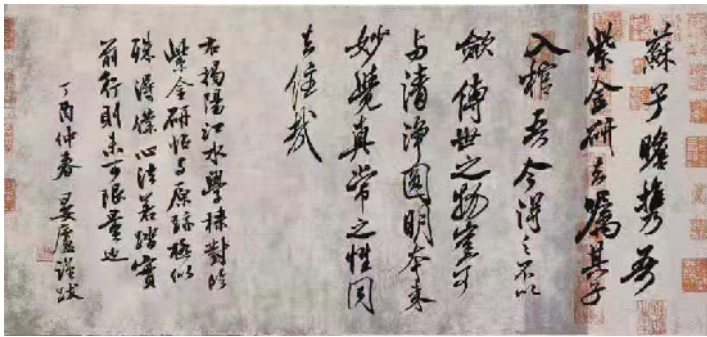 蘇子瞻携吾
紫金研去囑其子
入棺吾今得之不以
歛傳世之物豈可
與清淨圓明本來
妙覺真常之性同
去住哉
右揭陽江水學棣對臨
紫金研帖與原跡極似
殊得心法若踏實
前行則未可限量也
丁酉仲春 廬謹跋